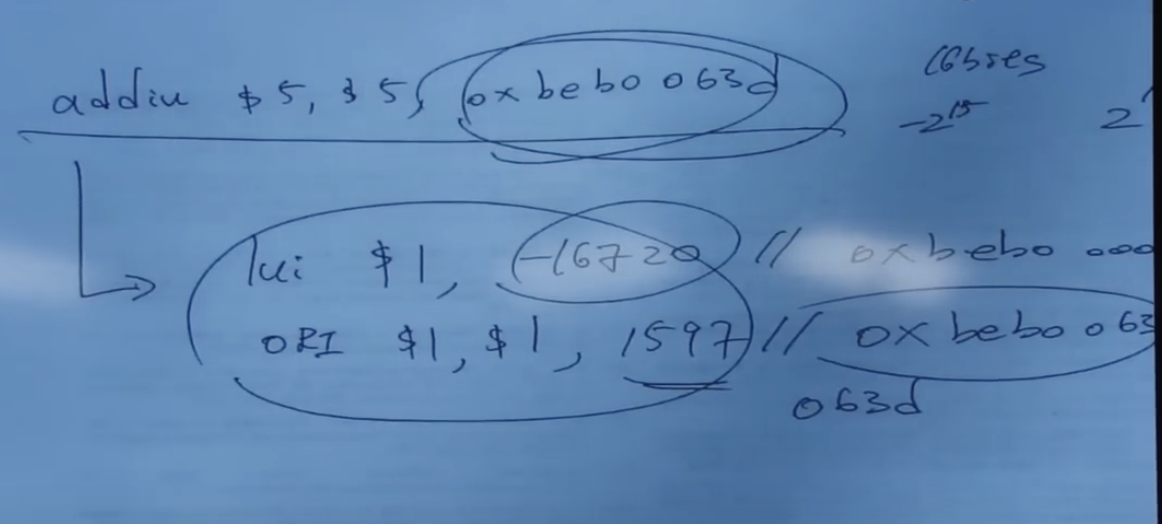 addiu $5, $5, 0xbeb0063d 16bits
-2^15 2
lui $1, -16720 // 0xbeb0 000
ORI $1, $1, 1597 // 0xbeb0063
063d